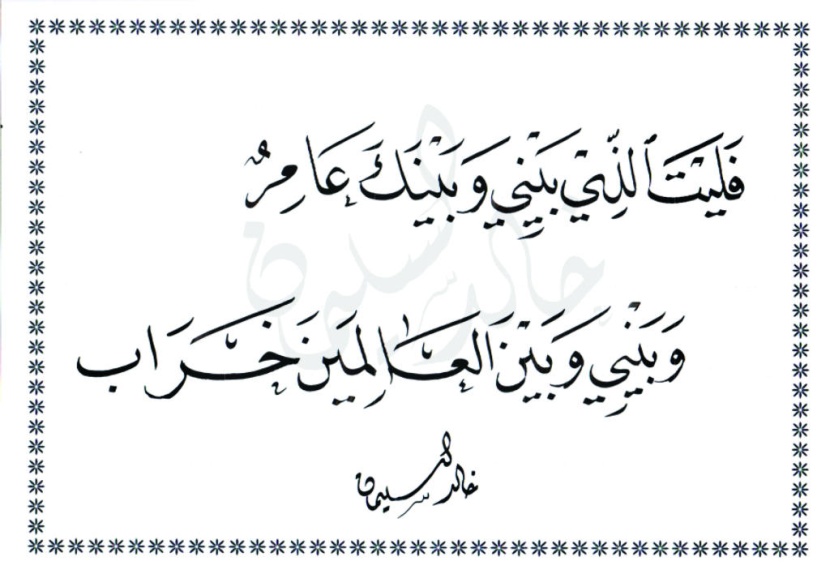 فَلَيْتَ ٱلَّذِيْ بَيْنِي وَبَيْنَكَ عَامِرٌ
وَبَيْنِي وَبَيْنَ العَالَمِيْنَ خَرَاب
خالد السليمان